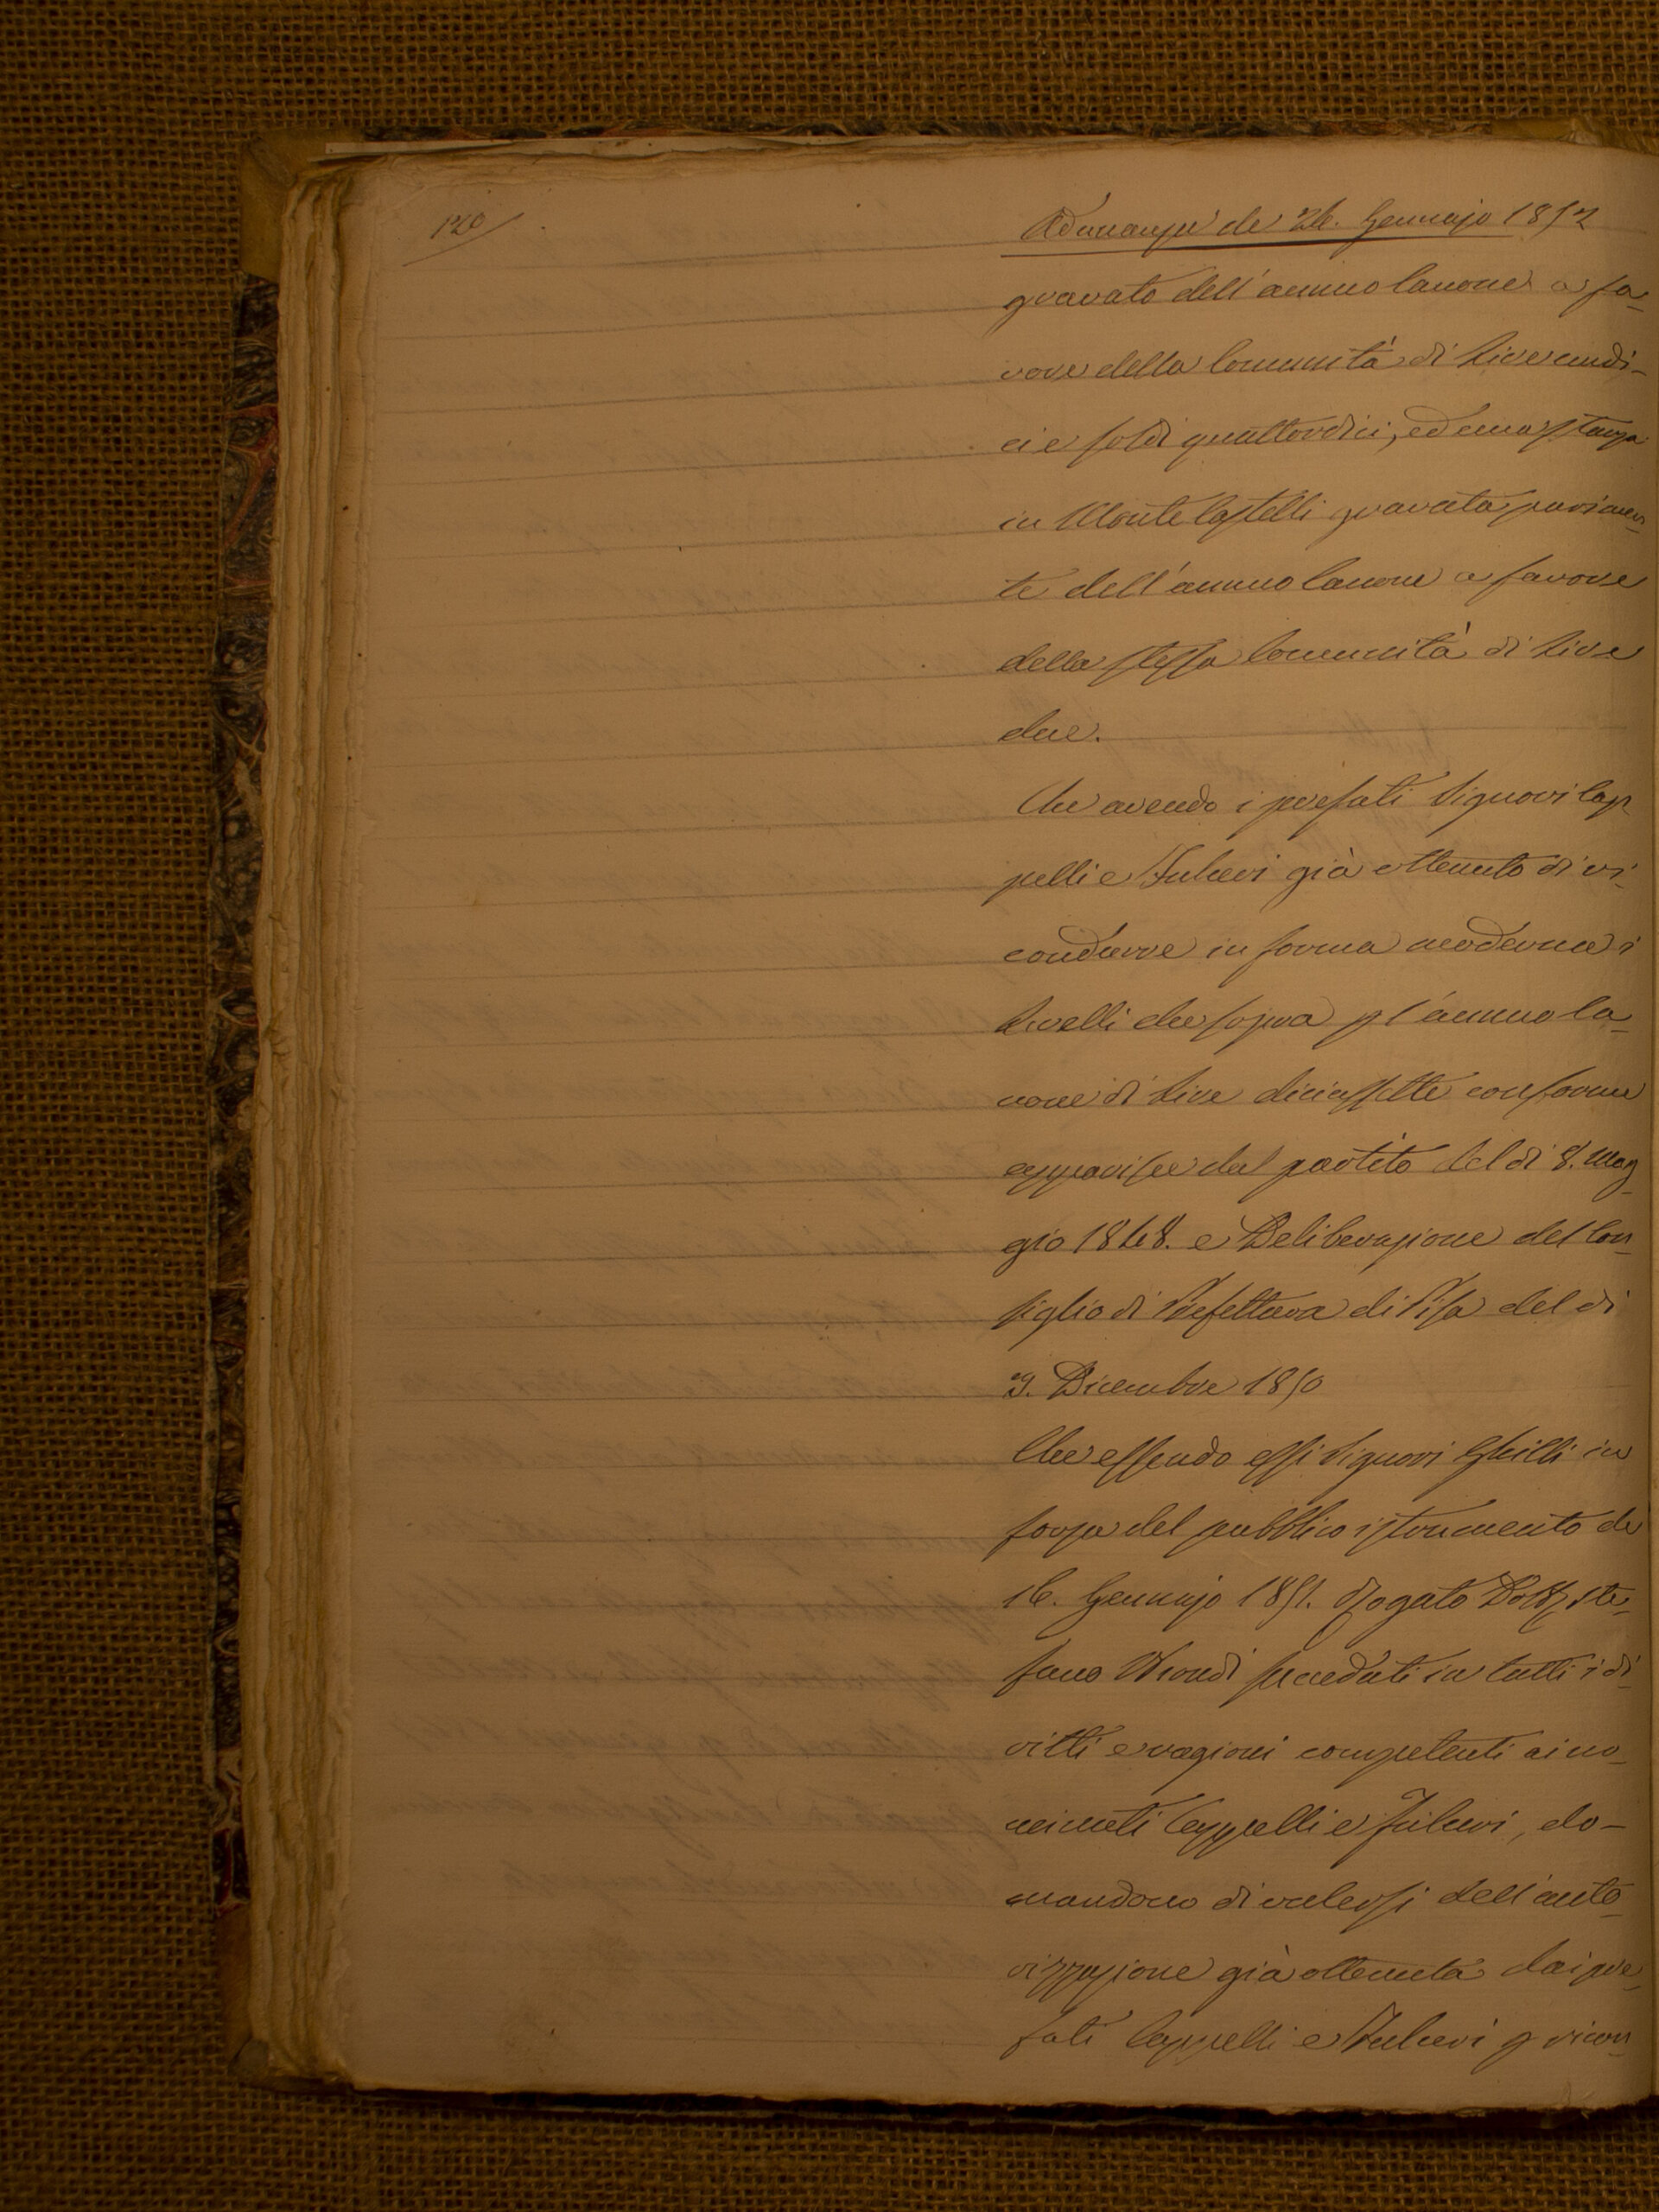 120
Adunanza de 26. Gennajo 1852
gravato dell'annuo Canone a fa-
vore della Comunità di Lire undi-
ci e soldi quattordici, ed una stanza
in Monte Castelli gravata parimen-
te dell'annuo Canone a favore
della stessa Comunità di Lire
due.
Che avendo i prefati Signori Cap-
pelli e Fulceri già ottenuto di ri-
condurre in forma moderna i
Livelli che sopra p l'annuo Ca-
none di Lire diciassette conforme
apparisce dal partito del dì 8. Mag-
gio 1848. e Deliberazione del Con-
siglio di Prefettura di Pisa del dì
9. Dicembre 1850
Che essendo essi Signori Ghilli in
forza del pubblico istrumento de
16. Gennajo 1851. Rogato Dott Ste-
fano succeduti in tutti i di-
ritti e ragioni competenti ai no-
minati Cappelli e Fulceri, do-
mandono di valersi dell'auto-
rizzazione già ottenuta dai pre-
fati Cappelli e Fulceri p ricon-